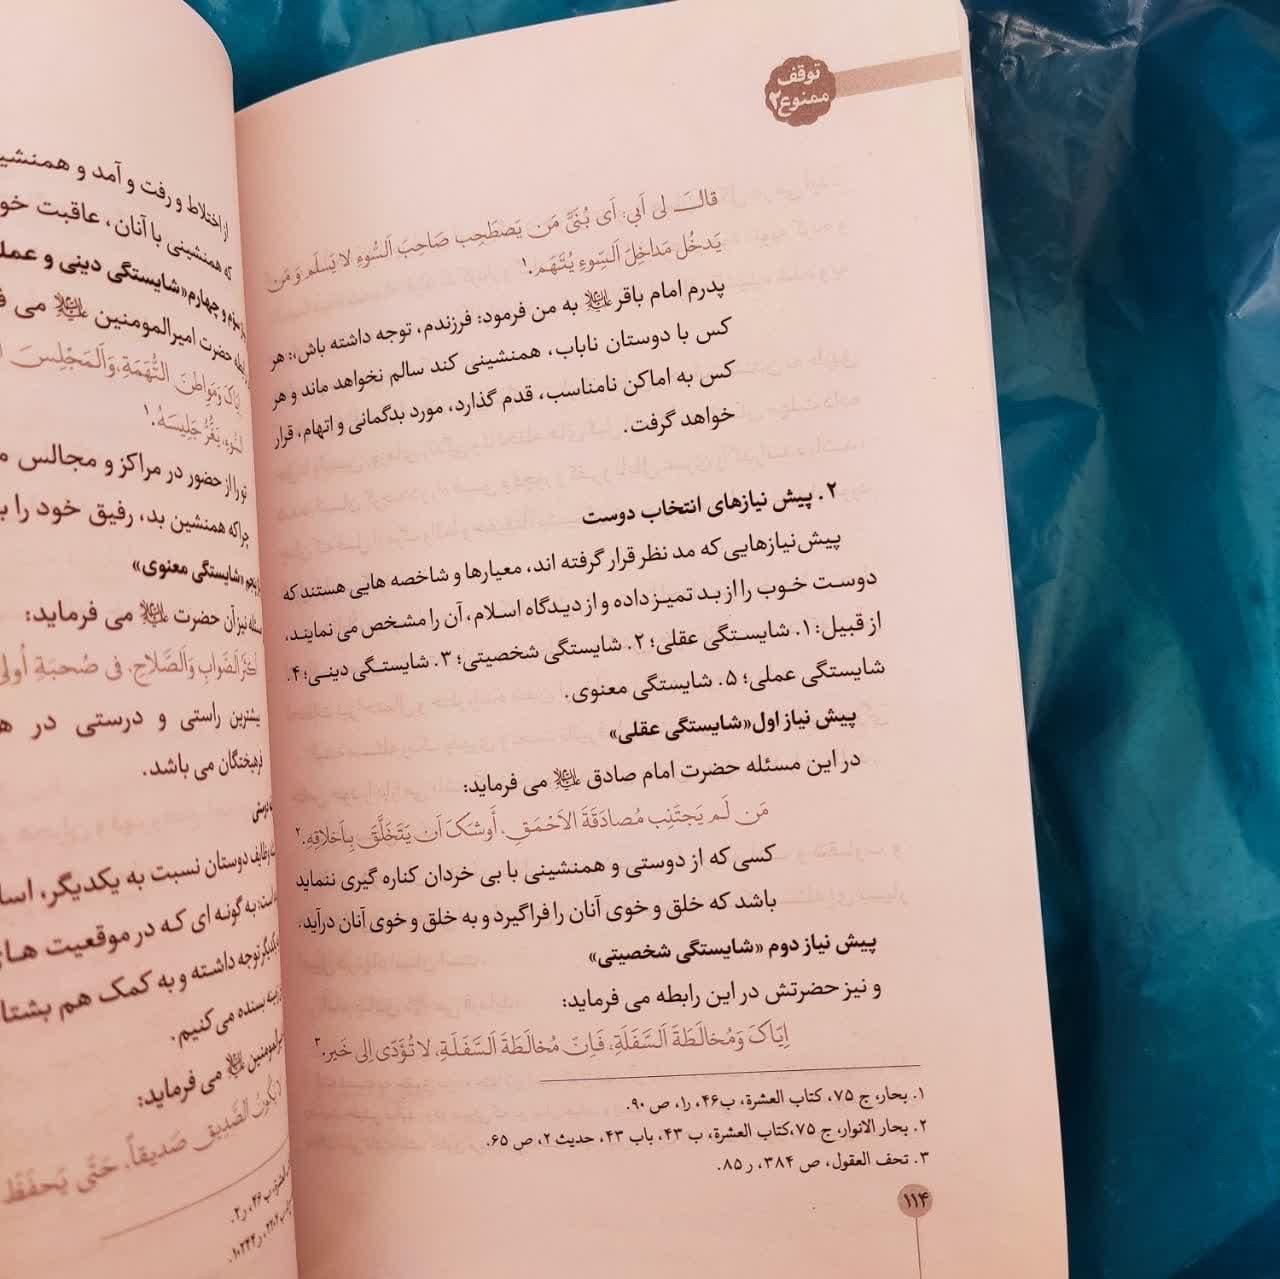 توقف
ممنوع۲
قال لی اَبی: اَی بُنَیَّ مَن یَصطَحِب صاحِبَ اَلسُّوءِ لا یَسلَم وَ مَن
یَدخُل مَداخِلَ اَلسّوءِ یُتَّهَم.۱
پدرم امام باقر علیه‌السلام به من فرمود: فرزندم، توجه داشته باش،: هر
کس با دوستان ناباب، همنشینی کند سالم نخواهد ماند و هر
کس به اماکن نامناسب، قدم گذارد، مورد بدگمانی و اتهام، قرار
خواهد گرفت.
۲. پیش نیازهای انتخاب دوست
پیش‌نیازهایی که مد نظر قرار گرفته اند، معیارها و شاخصه هایی هستند که
دوست خوب را از بد تمیز داده و از دیدگاه اسلام، آن را مشخص می نمایند،
از قبیل: ۱. شایستگی عقلی؛ ۲. شایستگی شخصیتی؛ ۳. شایستگی دینی؛ ۴.
شایستگی عملی؛ ۵. شایستگی معنوی.
پیش نیاز اول«شایستگی عقلی»
در این مسئله حضرت امام صادق علیه‌السلام می فرماید:
مَن لَم یَجتَنِب مُصادَقَةَ الاَحمَقِ، أَوشَکَ اَن یَتَخَلَّقَ بِاَخلاقِهِ.۲
کسی که از دوستی و همنشینی با بی خردان کناره گیری ننماید
باشد که خلق و خوی آنان را فراگیرد و به خلق و خوی آنان درآید.
پیش نیاز دوم «شایستگی شخصیتی»
و نیز حضرتش در این رابطه می فرماید:
اِیّاکَ وَ مُخالَطَةَ اَلسَّفَلَةِ، فَاِنّ مُخالَطَةَ اَلسَّفَلَةِ، لا تُؤَدّی اِلی خَیر.۳
۱. بحار، ج ۷۵، کتاب العشرة، ب۴۶، ر۱، ص ۹۰.
۲. بحار الانوار، ج ۷۵،کتاب العشرة، ب ۴۳، باب ۴۳، حدیث ۲، ص ۶۵.
۳. تحف العقول، ص ۳۸۴، ر ۸۵.
۱۱۴
از اختلاط و رفت و آمد و
که همنشینی با آنان، عاقبت
و چهارم«شایستگی دینی و
حضرت امیرالمومنین علیه‌السلام می
وَ مَواطِنَ التُّهَمَةِ، وَالمَجلِسَ
السُّوءِ، یَغُرُّ جَلیسَهُ.۱
تو را از حضور در مراکز و مجالس
چراکه همنشین بد، رفیق خود را
«شایستگی معنوی»
نیز آن حضرت علیه‌السلام می فرماید:
الصَّوابِ وَالصَّلاحِ، فی صُحبَةِ
بیشترین راستی و درستی در
فرهیختگان می باشد.
وظایف دوستان نسبت به یکدیگر،
است؛ به گونه ای که در موقعیت
توجه داشته و به کمک هم
بسنده می کنیم.
علیه‌السلام می فرماید:
الصَّدیق صَدیقاً، حَتّی یَحفَظَ